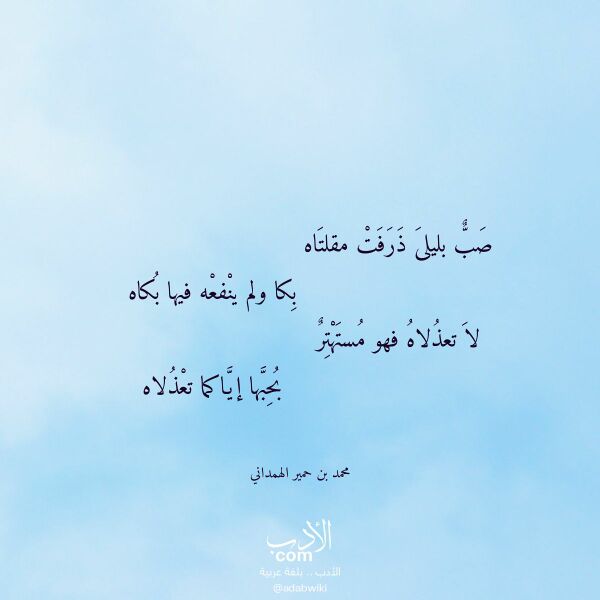 صَبٌّ بليلىَ ذَرَفَتْ مقلتَاه
بِكا ولم ينْفعْه فيها بُكاه
لاَ تعذُلاهُ فهو مُستَهْتِرٌ
بُحِبَّها إيَّاكما تعْذُلاه
محمد بن حمير الهمداني
الأدب
.com
الأدب .. بلغة عربية
@adabwiki